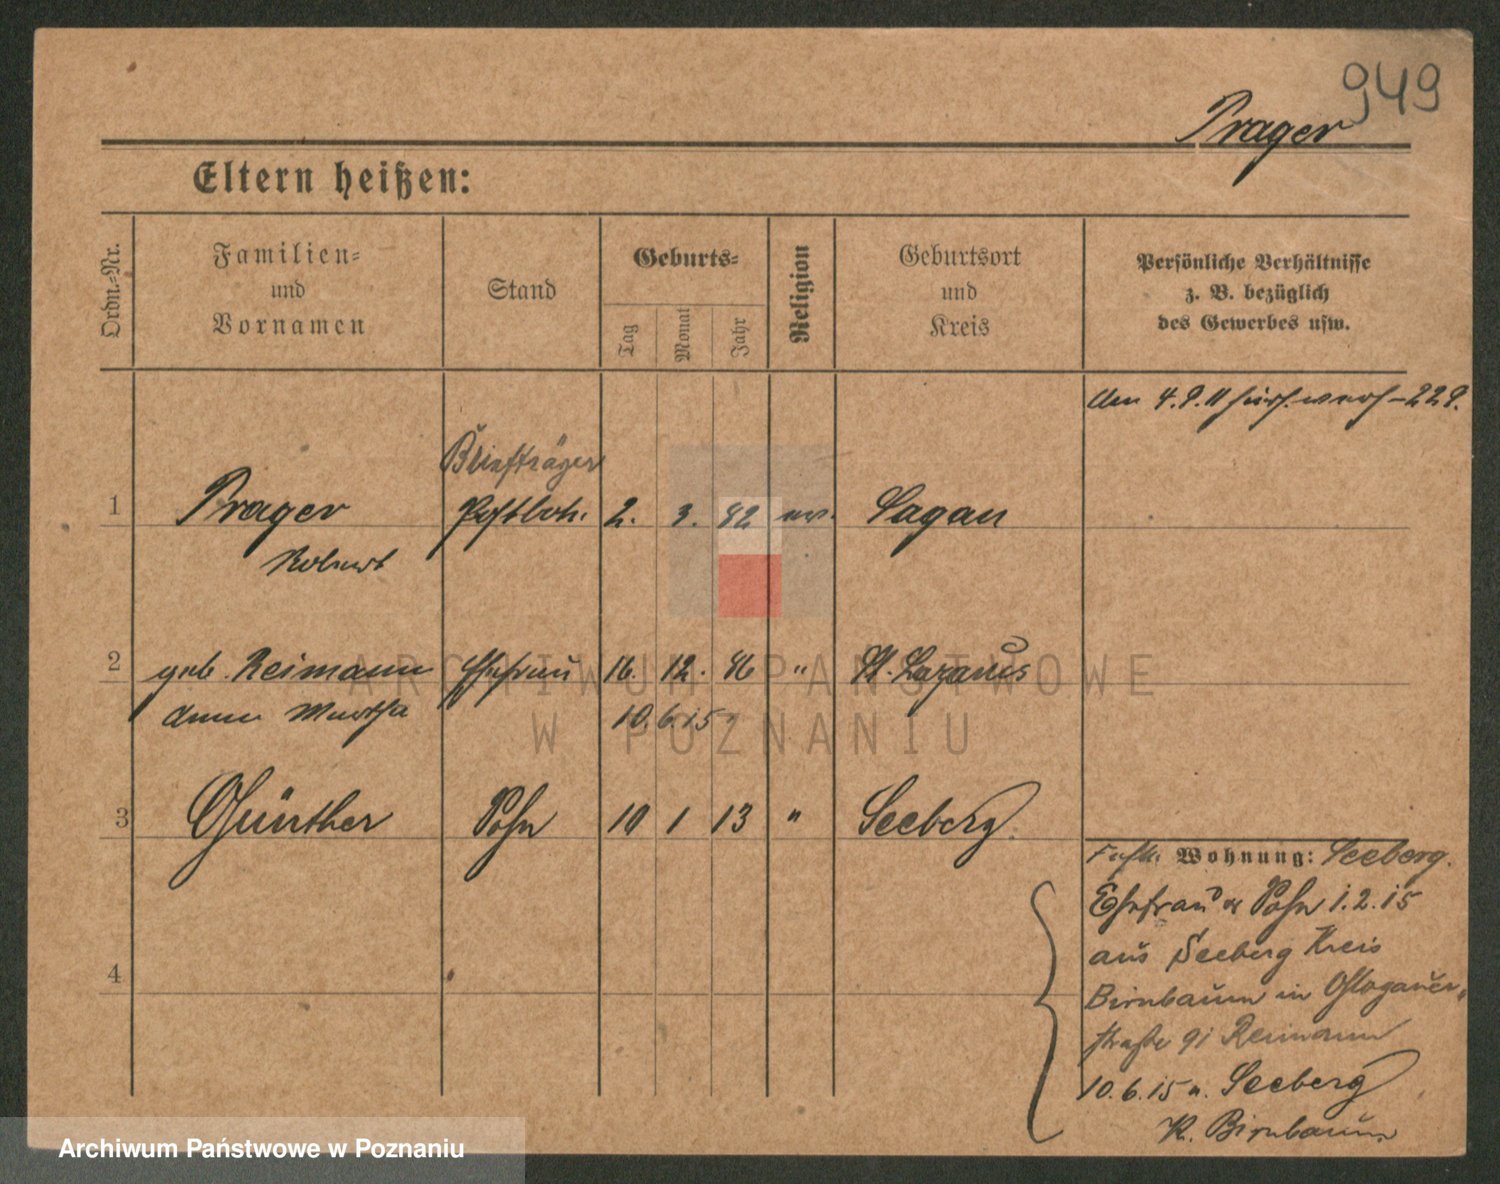 949
Prager
Eltern heißen:
Ordn.-Nr.
Familien-
und
Vornamen
Stand
Geburts-
Tag
Monat
Jahr
Religion
Geburtsort
und
Kreis
Persönliche Verhältnisse
z. B. bezüglich
des Gewerbes usw.
4.9.11
Briefträger
1 Prager Postbote 2. 3. 82 ev. Sagan
Robert
2 geb. Reimann Ehefrau 16. 12. 86 " St. Lazarus
Anna Martha 10.6.15
3 Günther Sohn 10 1 13 " Seeberg
4
Wohnung: Seeberg.
Ehefrau & Sohn 1.2.15
aus Seeberg Kreis
Birnbaum in Glogauer-
straße 91 Reimann
10.6.15 n. Seeberg
K. Birnbaum
ARCHIWUM PAŃSTWOWE
W POZNANIU
Archiwum Państwowe w Poznaniu